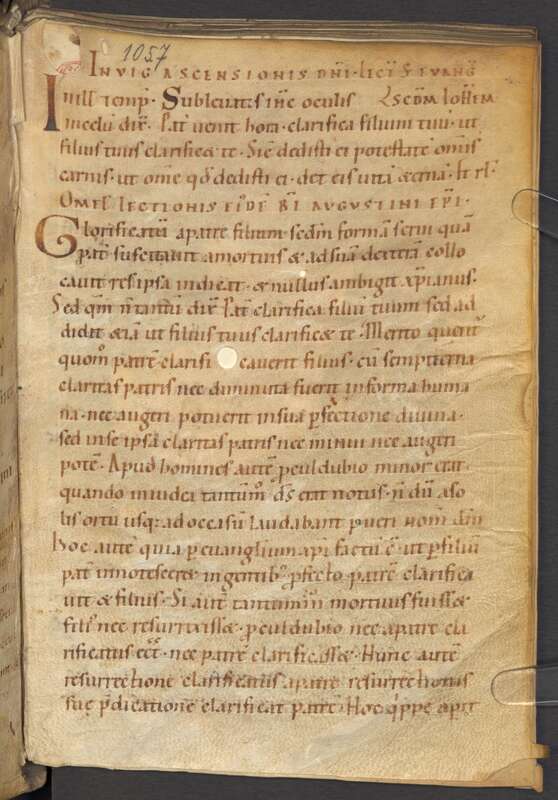 1057
IN VIG ASCENSIONIS DNI. LECT S EVANG
In ill temp. Subleuatis ihc oculis SCDM IOHEM
in celu dix. Pat uenit hora. clarifica filium tuu. ut
filius tuus clarificet te. Sic dedisti ei potestate omis
carnis. ut ome qd dedisti ei. det eis uita aeterna. Et rl.
OMEL LECTIONIS EIDE BI AVGVSTINI EPI.
Glorificatu a patre filium scdm forma serui qua
pat suscitauit a mortuis & ad sua dextera collo
cauit res ipsa indicat. & nullus ambigit xpianus.
Sed qm n tantu dix Pat clarifica filiu tuum sed ad
didit & ut filius tuus clarificet te. Merito querit
quom patre clarificauerit filius. cu sempiterna
claritas patris nec diminuta fuerit in forma huma
na. nec augeri potuerit in sua pfectione diuina.
sed in se ipsa claritas patris nec minui nec augeri
pote. Apud homines aute pcul dubio minor erat
quando in iudea tantum ds erat notus. n du a so
lis ortu usq; ad occasu laudabant pueri nom dni
Hoc aute quia p euanglium xpi factu e. ut p filiu
pat innotesceret in gentib; pfecto patre clarifica
uit & filius. Si aut tantummo mortuus fuisset
filius nec resurrexisset. pcul dubio nec a patre cla
rificatus eet. nec patre clarificasset. Nunc aute
resurrectione clarificatus a patre resurrectionis
sue pdicatione clarificat patre. Hoc qippe aperit